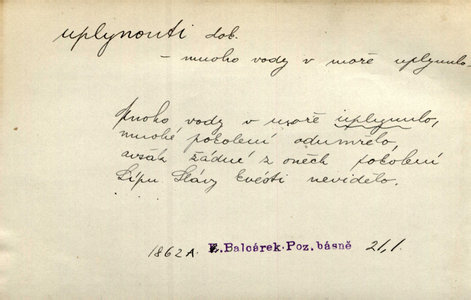 uplynouti dok.
– mnoho vody v moře uplynulo.
Mnoho vody v moře uplynulo,
mnohé pokolení odumřelo,
avšák žádné z onech pokolení
Lípu Slávy kvésti nevidělo.
1862 A. F. Balcárek. Poz. básně 21,1.